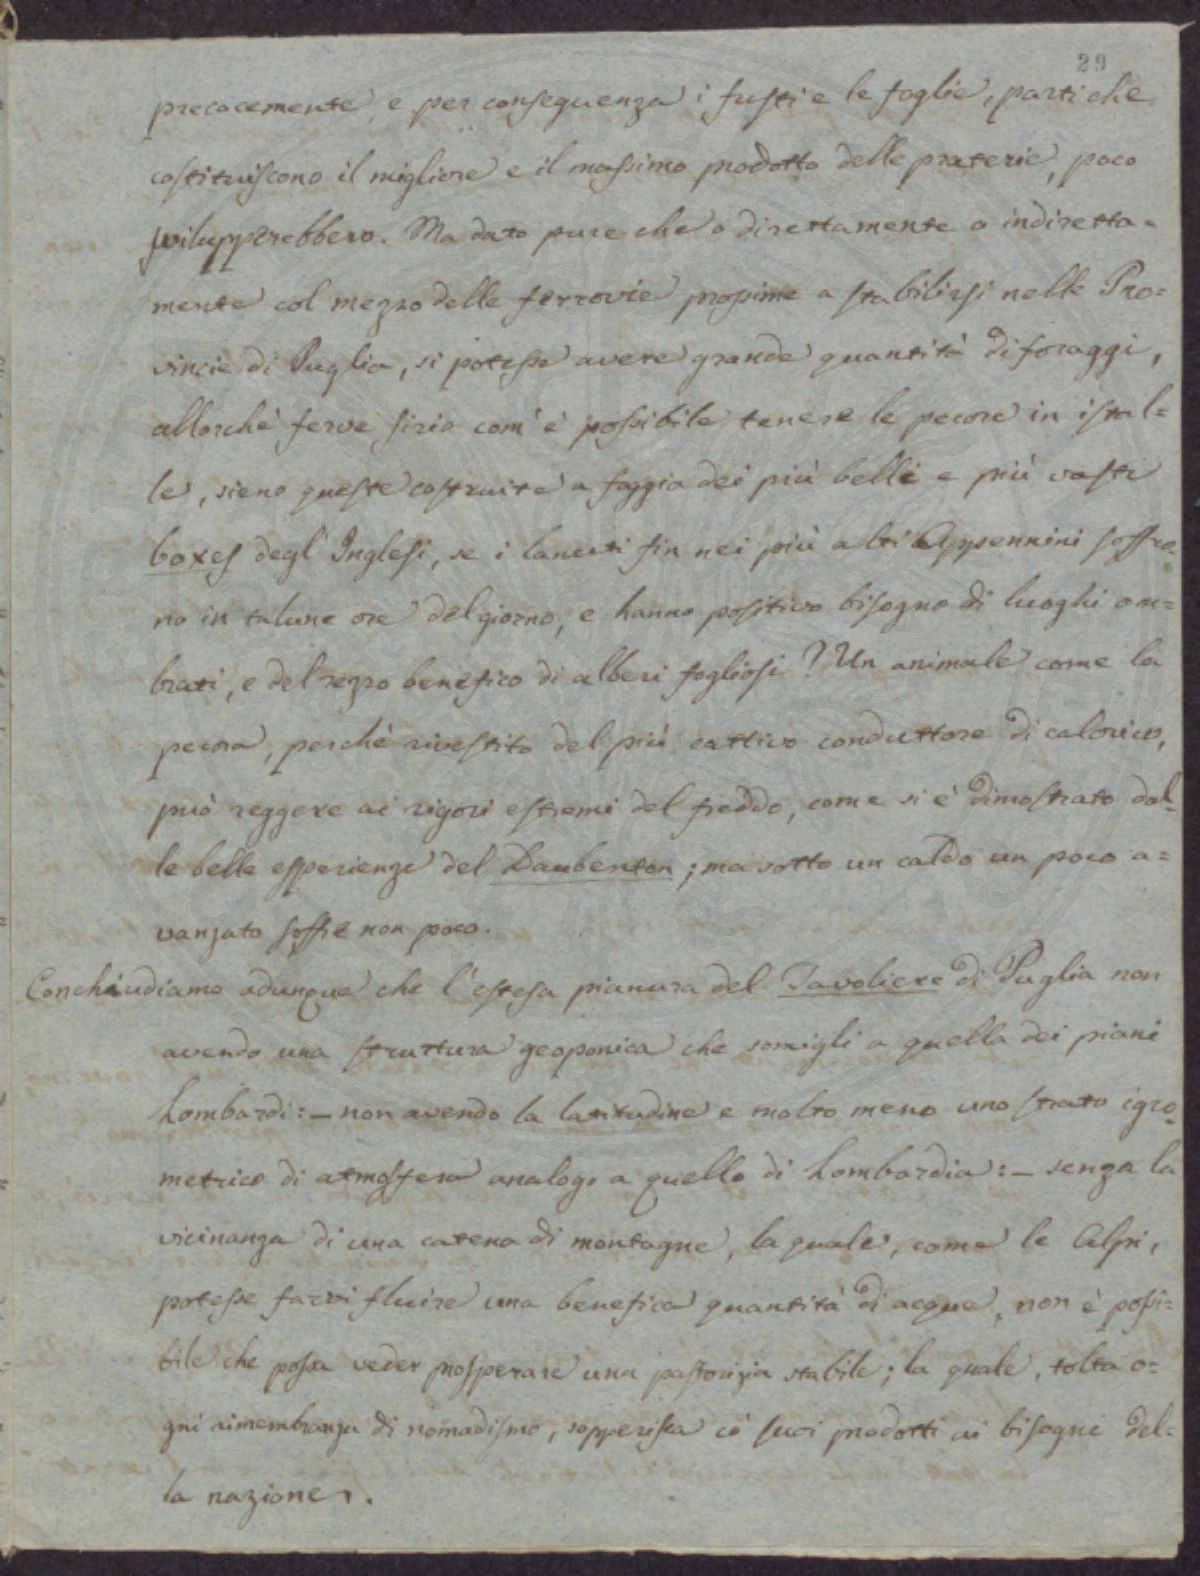 29
precocemente e per conseguenza i fusti e le foglie, parti che
costituiscono il migliore e il massimo prodotto delle praterie, poco
svilupperebbero. Ma dato pure che o direttamente o indiretta=
mente col mezzo delle ferrovie prossime a stabilirsi nelle Pro=
vincie di Puglia, si potesse avere grande quantità di foraggi,
allorchè ferve sirio com' è possibile tenere le pecore in istal=
le, sieno queste costruite a foggia dei più belli e più vasti
boxes degl' Inglesi, se i lanuti fin nei più alti Appennini soffro=
no in talune ore del giorno, e hanno positivo bisogno di luoghi om=
brati, e del rezzo benefico di alberi fogliosi? Un animale come la
pecora, perchè rivestito del più cattivo conduttore di calorico,
può reggere ai rigori estremi del freddo, come si è dimostrato dal=
le belle esperienze del Daubenton; ma sotto un caldo un poco a=
vanzato soffre non poco.
Conchiudiamo adunque che l'estesa pianura del Tavoliere di Puglia non
avendo una struttura geoponica che somigli a quella dei piani
Lombardi:— non avendo la latitudine e molto meno uno strato igro=
metrico di atmosfera analogo a quello di Lombardia:— senza la
vicinanza di una catena di montagne, la quale, come le Alpi,
potesse farvi fluire una benefica quantità di acque, non è possi=
bile che possa veder prosperare una pastorizia stabile; la quale, tolta o=
gni rimembranza di nomadismo, sopperisca co' suoi prodotti ai bisogni del=
la nazione.